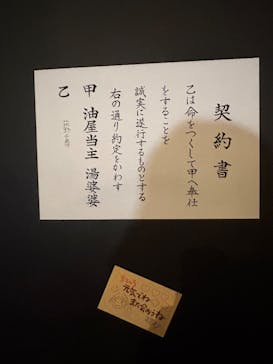 契約書
乙は命をつくして甲へ奉仕
をすることを
誠実に遂行するものとする
右の通り約定をかわす
甲 油屋当主 湯婆婆
乙
元気でね
また会おうね